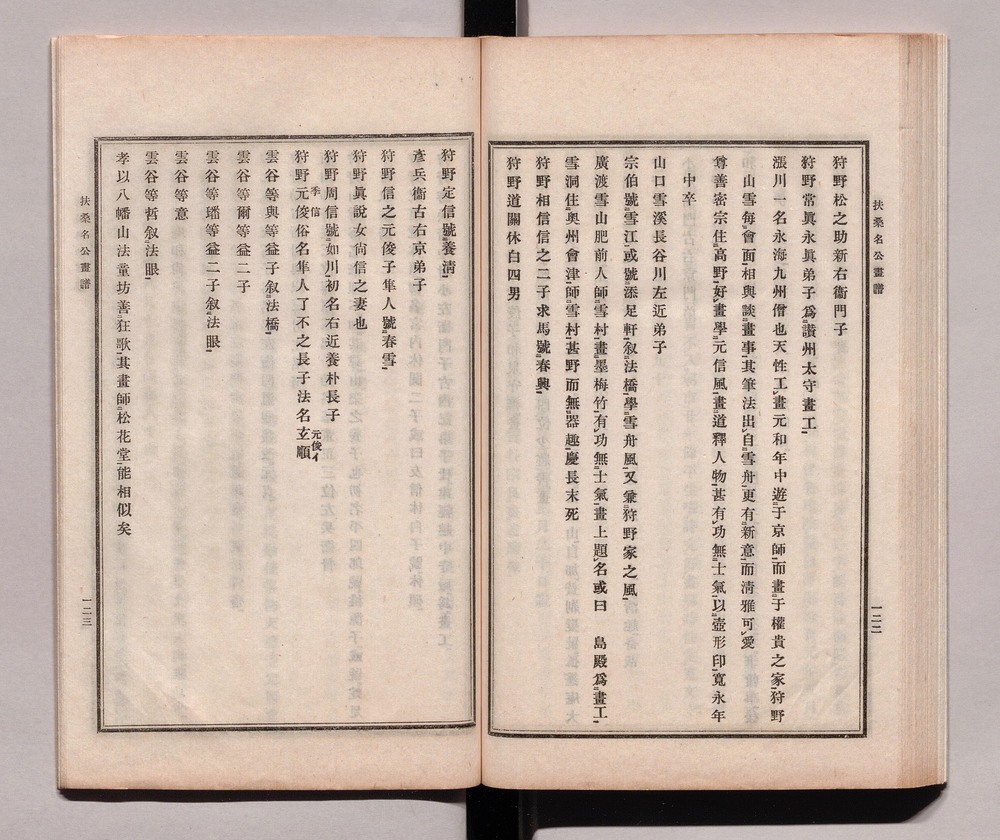 扶桑名公畫譜
一二二
狩野松之助新右衞門子
狩野常眞永眞弟子爲讃州太守畫工
漲川一名永海九州僧也天性工畫元和年中遊于京師而畫于權貴之家狩野
山雪每會面相與談畫事其筆法出自雪舟更有新意而淸雅可愛
尊善密宗住高野好畫學元信風畫道釋人物甚有功無士氣以壺形印寬永年
中卒
山口雪溪長谷川左近弟子
宗伯號雪江或號添足軒叙法橋學雪舟風又兼狩野家之風
廣渡雪山肥前人師雪村畫墨梅竹有功無士氣畫上題名或曰　島殿爲畫工
雪洞住奥州會津師雪村甚野而無器趣慶長末死
狩野相信信之二子求馬號春興
狩野道關休白四男
狩野定信號養淸
彥兵衞古右京弟子
狩野信之元俊子隼人號春雪
狩野眞說女尙信之妻也
狩野周信號如川初名右近養朴長子
狩野元俊俗名隼人了不之長子法名玄順
季信
元俊イ
雲谷等與等益子叙法橋
雲谷等爾等益二子
雲谷等璠等益二子叙法眼
雲谷等意
雲谷等哲叙法眼
孝以八幡山法童坊善狂歌其畫師松花堂能相似矣
扶桑名公畫譜
一二三